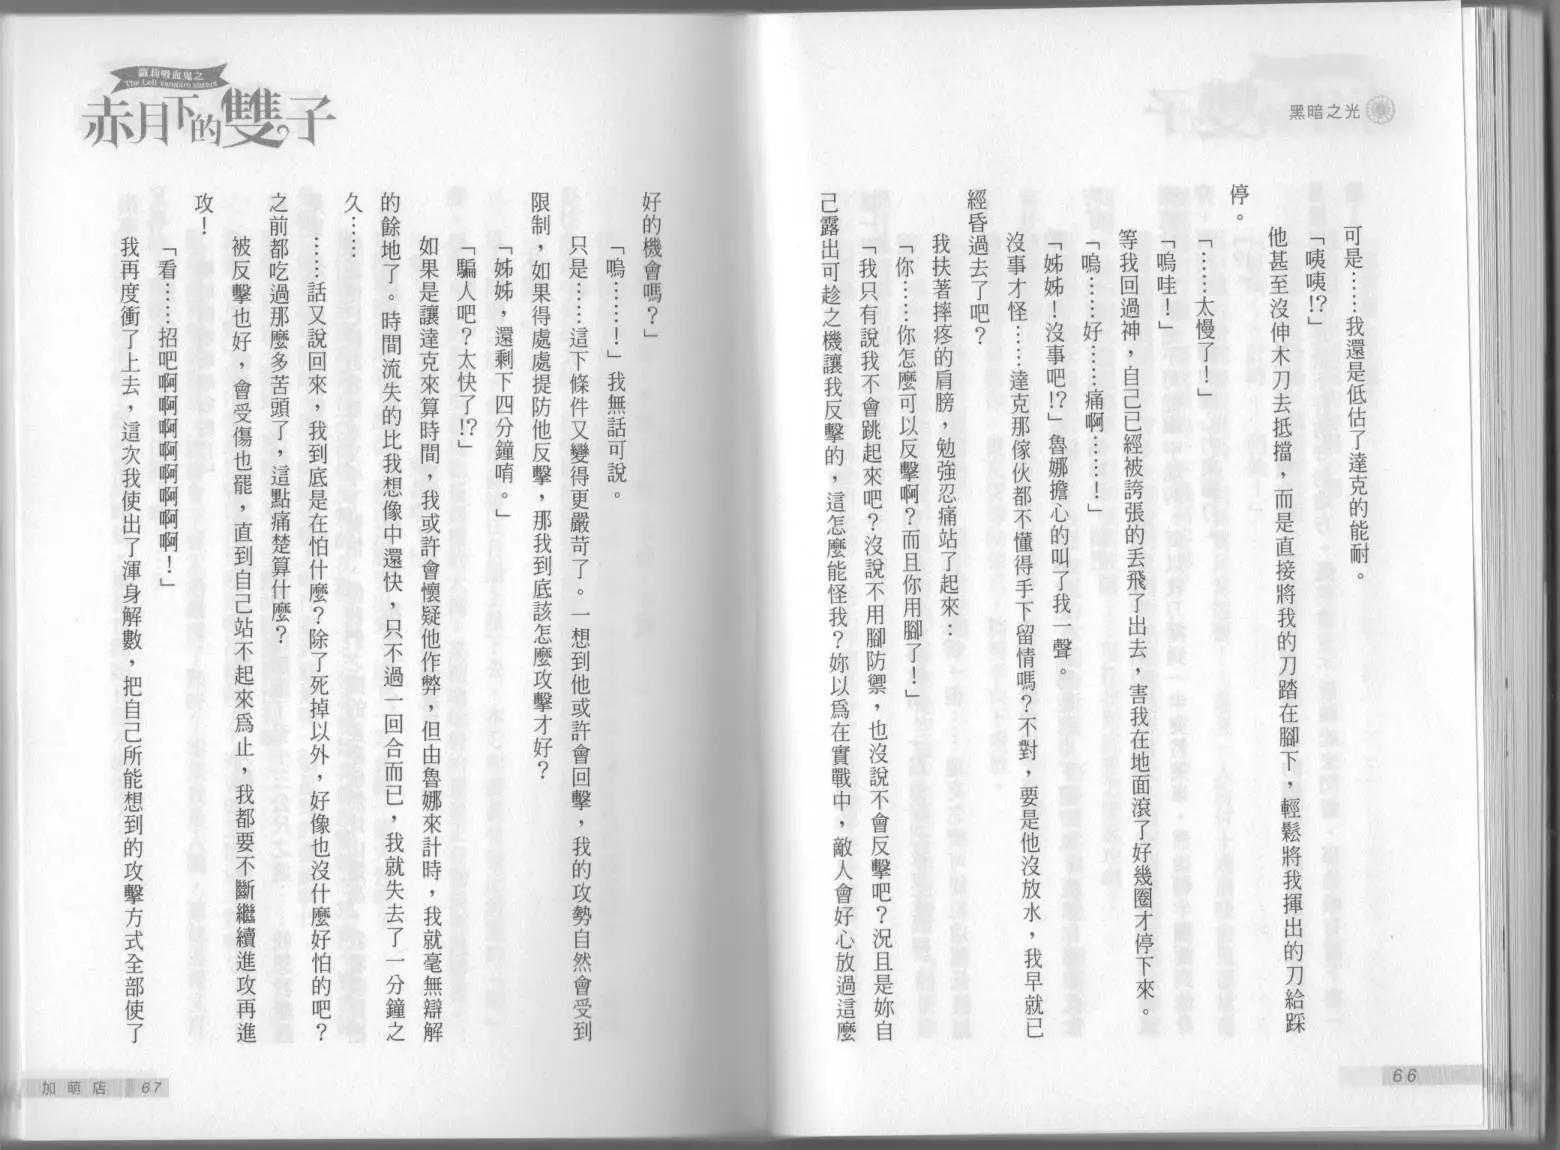 黑暗之光
可是……我還是低估了達克的能耐。
「咦咦!?」
他甚至沒伸木刀去抵擋，而是直接將我的刀踏在腳下，輕鬆將我揮出的刀給踩
停。
「……太慢了！」
「嗚哇！」
等我回過神，自己已經被誇張的丟飛了出去，害我在地面滾了好幾圈才停下來。
「嗚……好……痛啊……！」
「姊姊！沒事吧!?」魯娜擔心的叫了我一聲。
沒事才怪……達克那傢伙都不懂得手下留情嗎？不對，要是他沒放水，我早就已
經昏過去了吧？
我扶著摔疼的肩膀，勉強忍痛站了起來：
「你……你怎麼可以反擊啊？而且你用腳了！」
「我只有說我不會跳起來吧？沒說不用腳防禦，也沒說不會反擊吧？況且是妳自
己露出可趁之機讓我反擊的，這怎麼能怪我？妳以爲在實戰中，敵人會好心放過這麼
66
蘿莉吸血鬼之
The Loli vampire sisters
赤月下的雙子
好的機會嗎？」
「嗚……！」我無話可說。
只是……這下條件又變得更嚴苛了。一想到他或許會回擊，我的攻勢自然會受到
限制，如果得處處提防他反擊，那我到底該怎麼攻擊才好？
「姊姊，還剩下四分鐘唷。」
「騙人吧？太快了!?」
如果是讓達克來算時間，我或許會懷疑他作弊，但由魯娜來計時，我就毫無辯解
的餘地了。時間流失的比我想像中還快，只不過一回合而已，我就失去了一分鐘之
久……
……話又說回來，我到底是在怕什麼？除了死掉以外，好像也沒什麼好怕的吧？
之前都吃過那麼多苦頭了，這點痛楚算什麼？
被反擊也好，會受傷也罷，直到自己站不起來爲止，我都要不斷繼續進攻再進
攻！
「看……招吧啊啊啊啊啊啊啊啊！」
我再度衝了上去，這次我使出了渾身解數，把自己所能想到的攻擊方式全部使了
加萌店 67